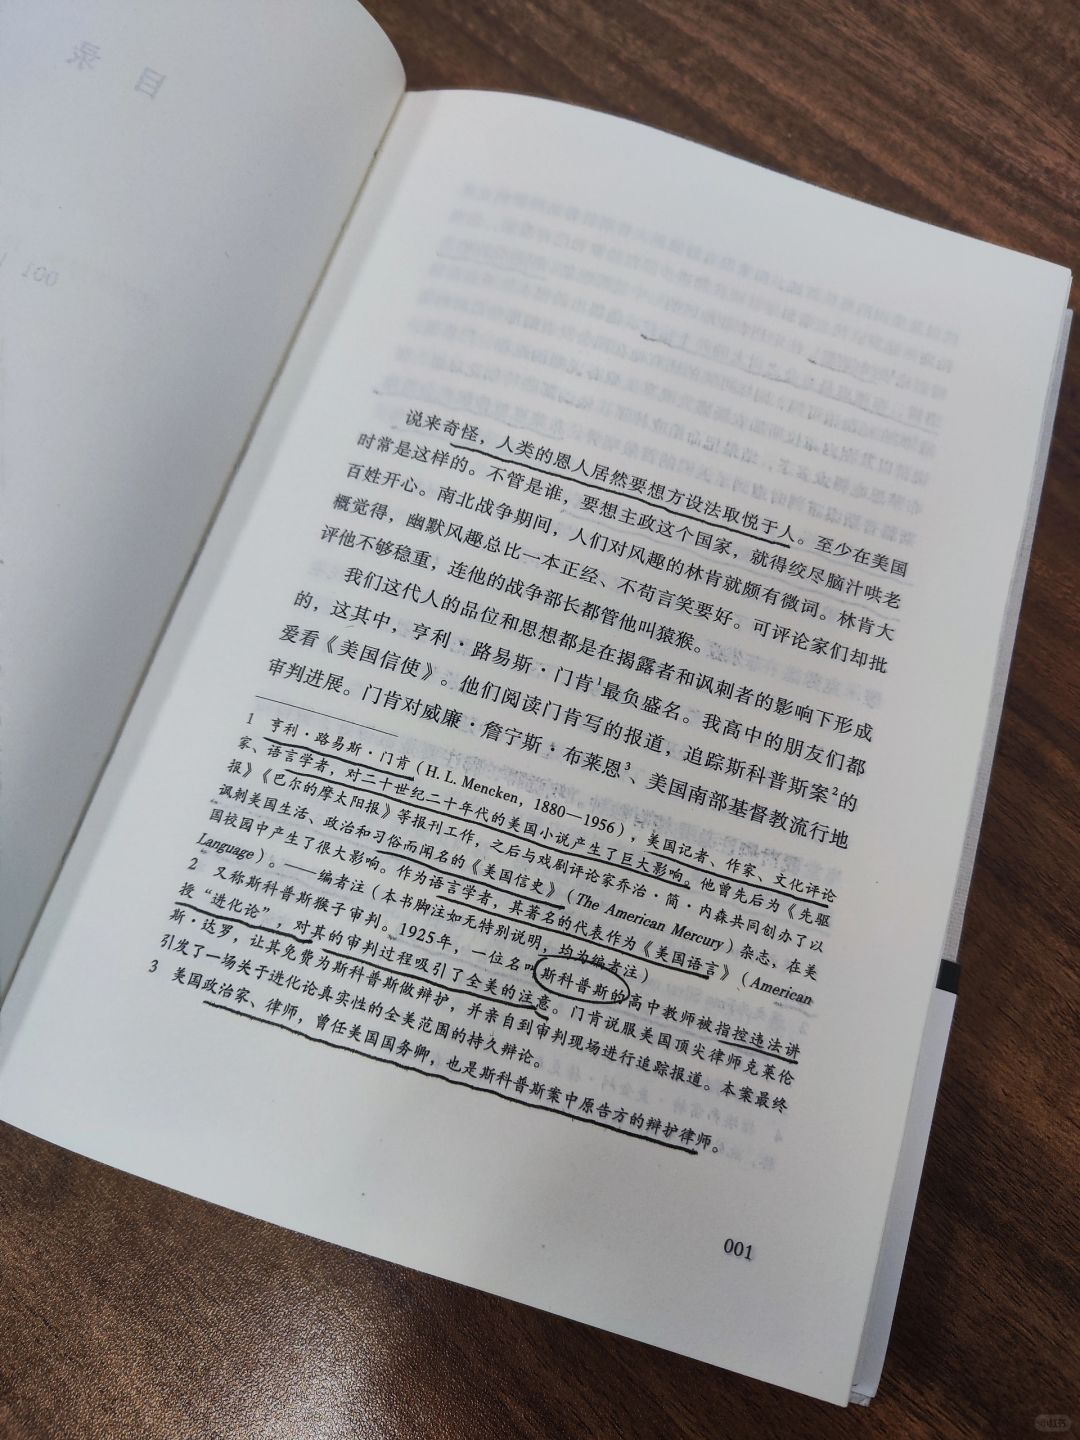 目 录
001
说来奇怪，人类的恩人居然要想方设法取悦于人。至少在美国
时常是这样的。不管是谁，要想主政这个国家，就得绞尽脑汁哄老
百姓开心。南北战争期间，人们对风趣的林肯就颇有微词。林肯大
概觉得，幽默风趣总比一本正经、不苟言笑要好。可评论家们却批
评他不够稳重，连他的战争部长都管他叫猿猴。
我们这代人的品位和思想都是在揭露者和讽刺者的影响下形成
的，这其中，亨利·路易斯·门肯1最负盛名。我高中的朋友们都
爱看《美国信使》。他们阅读门肯写的报道，追踪斯科普斯案2的
审判进展。门肯对威廉·詹宁斯·布莱恩3、美国南部基督教流行地
1 亨利·路易斯·门肯（H. L. Mencken，1880—1956），美国记者、作家、文化评论
家、语言学者，对二十世纪二十年代的美国小说产生了巨大影响。他曾先后为《先驱
报》《巴尔的摩太阳报》等报刊工作，之后与戏剧评论家乔治·简·内森共同创办了以
讽刺美国生活、政治和习俗而闻名的《美国信史》（The American Mercury）杂志，在美
国校园中产生了很大影响。作为语言学者，其著名的代表作为《美国语言》（American
Language）。——编者注（本书脚注如无特别说明，均为编者注）
2 又称斯科普斯猴子审判。1925年，一位名叫斯科普斯的高中教师被指控违法讲
授“进化论”，对其的审判过程吸引了全美的注意。门肯说服美国顶尖律师克莱伦
斯·达罗，让其免费为斯科普斯做辩护，并亲自到审判现场进行追踪报道。本案最终
引发了一场关于进化论真实性的全美范围的持久辩论。
3 美国政治家、律师，曾任美国国务卿，也是斯科普斯案中原告方的辩护律师。
001
小红书